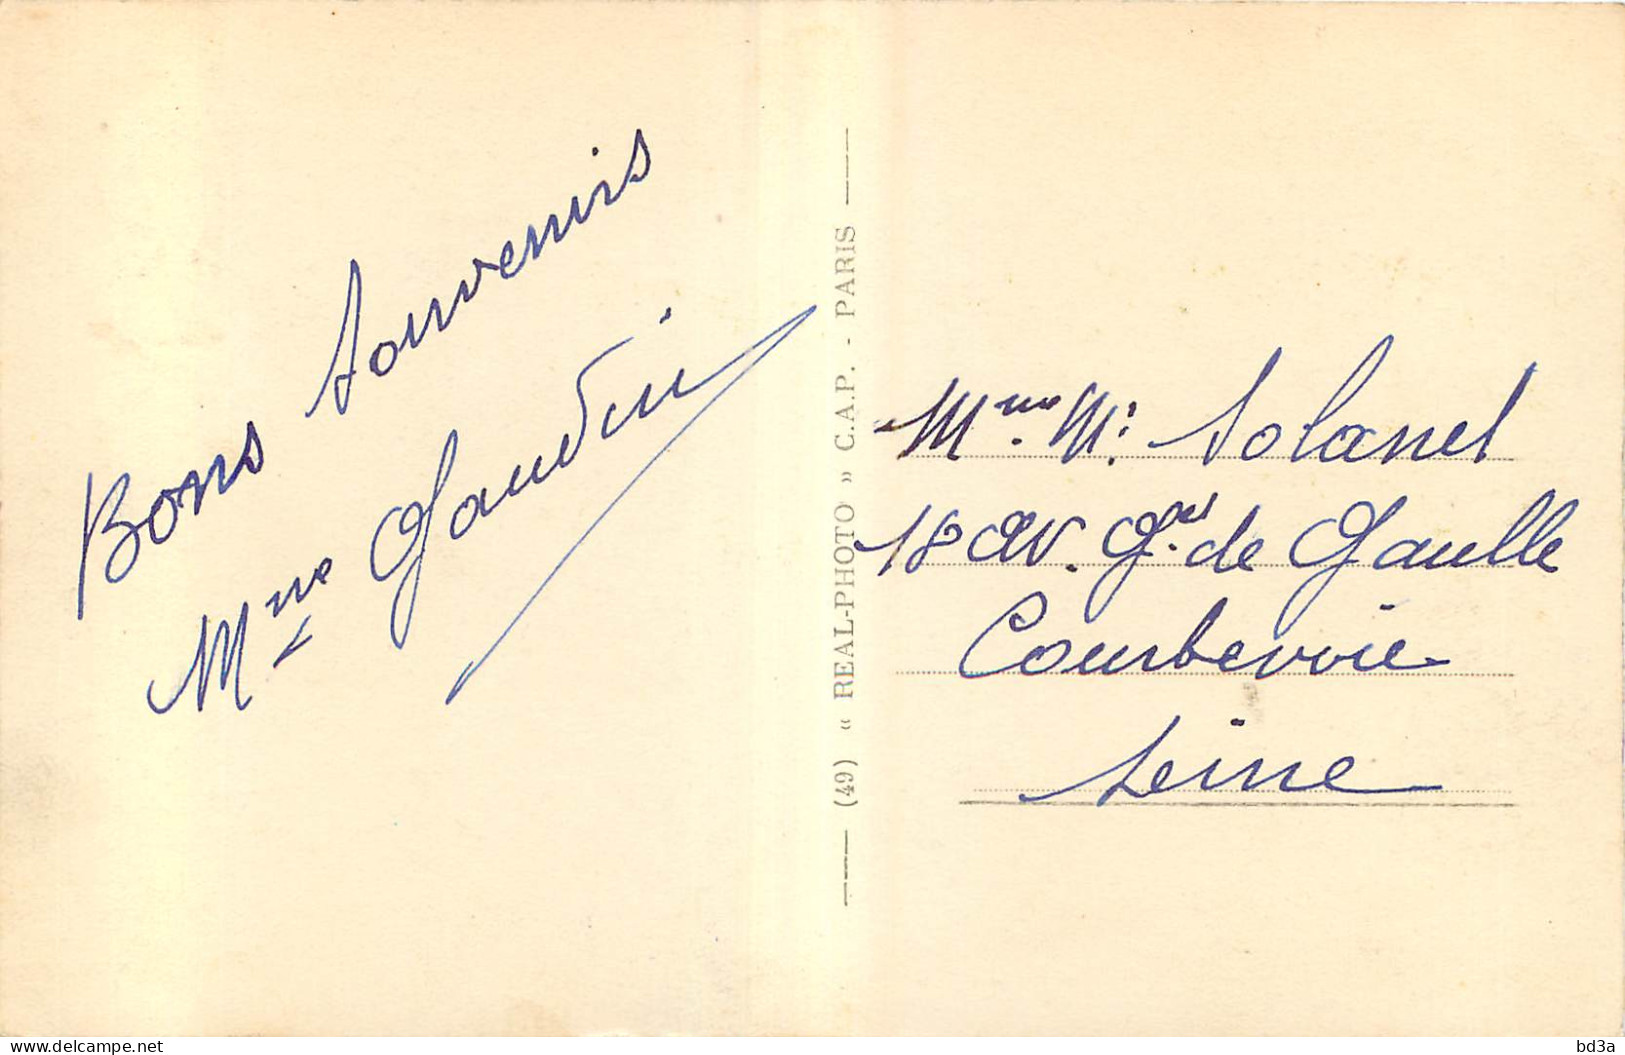 Bons souvenirs
Mme Gaudin
(49) « REAL-PHOTO » C.A.P. - PARIS
Mme M. Solanet
18 av. Gal de Gaulle
Courbevoie
Seine
delcampe.net
bd3a